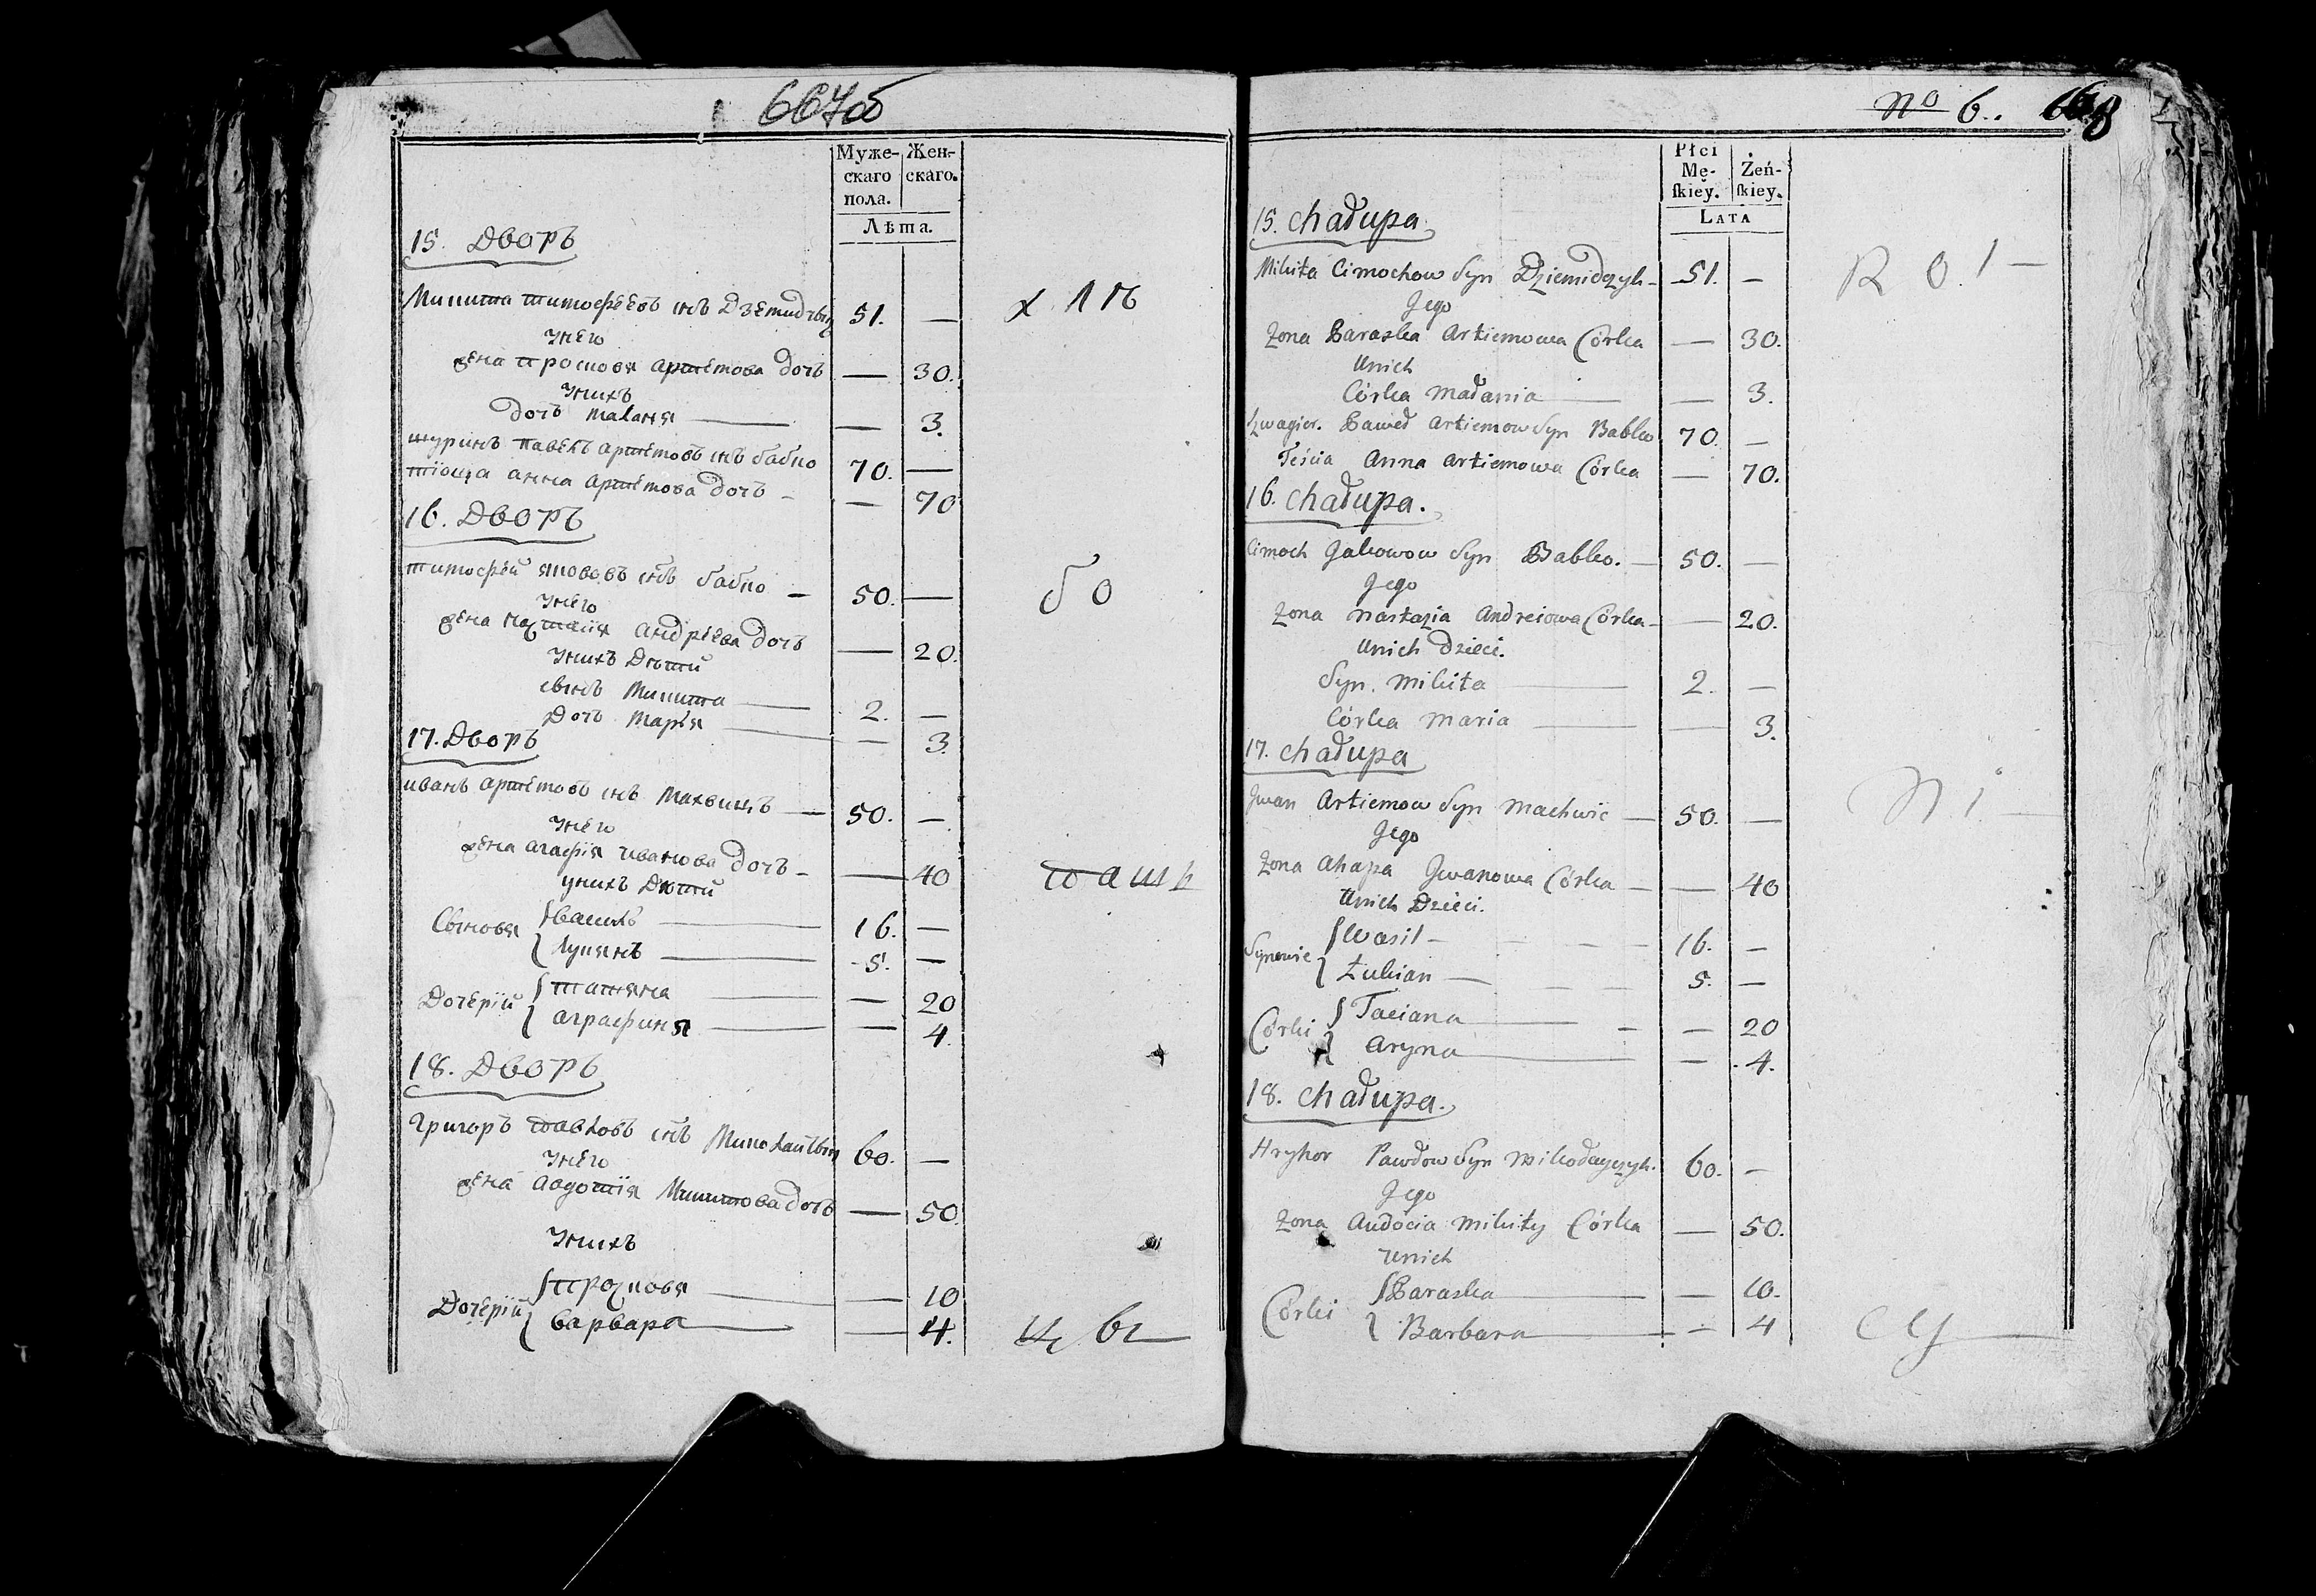 667об
Муже- Жен-
скаго скаго.
пола.
Лѣта.
15. Дворъ
Микита тимофѣевъ снъ Дземидчик 51. —
х л п
унего
жена просковя артемова дочь — 30.
унихъ
дочь маланя — 3.
шуринъ павелъ артемовъ снъ бабко 70. —
тіоща анна артемова дочь — 70
16. Дворъ
тимофей якововъ снъ бабко 50. —
б о
унего
жена настасія андреева дочь — 20.
унихъ дѣти
сынъ микита 2. —
дочь марія — 3.
17. Дворъ
иванъ артемовъ снъ махвицъ 50. —
унего
жена агафія иванова дочь — 40
унихъ дѣти
сыновя { василь 16. —
{ лукянъ 5. —
дочерїи { татяна — 20
{ аграфиня — 4.
18. Дворъ
григоръ павловъ снъ миколайчик 60. —
унего
жена авдотія микитова дочь — 50.
унихъ
дочерїи { просковя — 10
{ варвара — 4.
No 6.
Płci
Mę- Żeń-
skiey. skiey.
LATA
15. chałupa
Mikita Cimochow Syn Dziemidczyk 51. —
R O !
Jego
Żona Paraska Artiemowa Córka — 30.
Unich
Córka Małania — 3.
Szwagier. Paweł Artiemow Syn Babko 70. —
Teścia Anna Artiemowa Córka — 70.
16. chałupa.
Cimoch Jakowow Syn Babko. 50. —
Jego
Żona Nastazia Andreiowa Córka — 20.
Unich Dzieci.
Syn. Mikita 2. —
Córka Maria — 3.
17. chałupa
Jwan Artiemow Syn Machwic 50. —
Jego
Żona Ahapa Jwanowa Córka — 40
Unich Dzieci.
Synowie { Wasil 16. —
{ Łukian 5. —
Córki { Taciana — 20
{ Aryna — 4.
18. chałupa.
Hryhor Pawłow Syn Mikołayczyk. 60. —
Jego
Żona Audocia Mikity Córka — 50.
Unich
Córki { Paraska — 10.
{ Barbara — 4